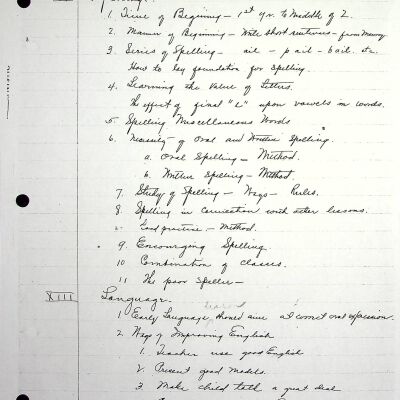 1. Time of Beginning - 1st yr. to Middle of 2.
2. Manner of Beginning - Write short sentences - from Memory
3. Series of Spelling - ail - p ail - b ail. etc.
How to lay foundation for Spelling.
4. Learning the Value of Letters.
The effect of final "e" upon vowels in words.
5. Spelling Miscellaneous Words
6. Necessity of Oral and Written Spelling.
a. Oral Spelling - Method.
b. Written Spelling - Method.
7. Study of Spelling - Ways - Rules.
8. Spelling in Connection with other lessons.
Good practice - Method.
9. Encouraging Spelling
10 Combination of classes.
11 The poor Speller -
XIII Language.
1 Early Language, should aim at correct oral expression.
2. Ways of Improving English
1. Teacher use good English
2. Present good models.
3. Make child talk a great deal